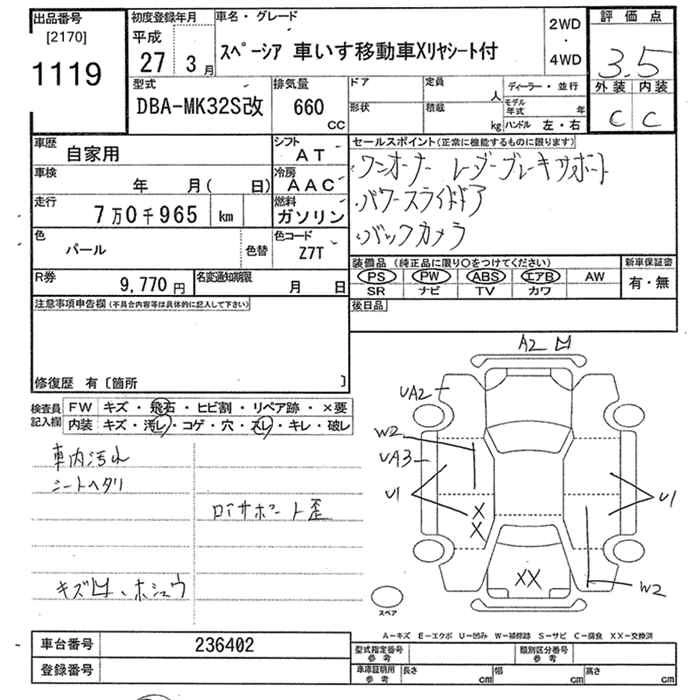 出品番号
[2170]
1119
初度登録年月
平成
27 3月
車名・グレード
スペーシア 車いす移動車Xリヤシート付
2WD
・
4WD
評価点
3.5
外装 内装
C C
型式
DBA-MK32S改
排気量
660
CC
ドア
定員
人
形状
積載
kg
ディーラー・並行
モデル年式 年
ハンドル 左・右
車歴
自家用
シフト
AT
セールスポイント(正常に機能するものに限ります)
ワンオーナー レーダーブレーキサポート
・パワースライドドア
・バックカメラ
車検
年 月( 日)
冷房
AAC
走行
7万0千965 km
燃料
ガソリン
色
パール
色替
色コード
Z7T
装備品(純正品に限り○をつけてください)
PS PW ABS エアB AW
SR ナビ TV カワ
新車保証書
有・無
R券
9,770円
名変通知期限
月 日
後日品
注意事項申告欄(不具合内容等は具体的に記入して下さい)
修復歴 有〔箇所 〕
検査員記入欄
FW キズ・飛石・ヒビ割・リペア跡・×要
内装 キズ・汚レ・コゲ・穴・スレ・キレ・破レ
車内汚れ
シートヘタリ
ロアサポート歪
キズ凹、ホシュウ
A2 凹
UA2
W2
UA3
U1
X
X
XX
U1
W2
スペア
A-キズ E-エクボ U-凹み W-補修跡 S-サビ C-腐食 XX-交換済
車台番号
236402
登録番号
型式指定番号
参考
類別区分番号
参考
車庫証明用
参考
長さ cm
幅 cm
高さ cm